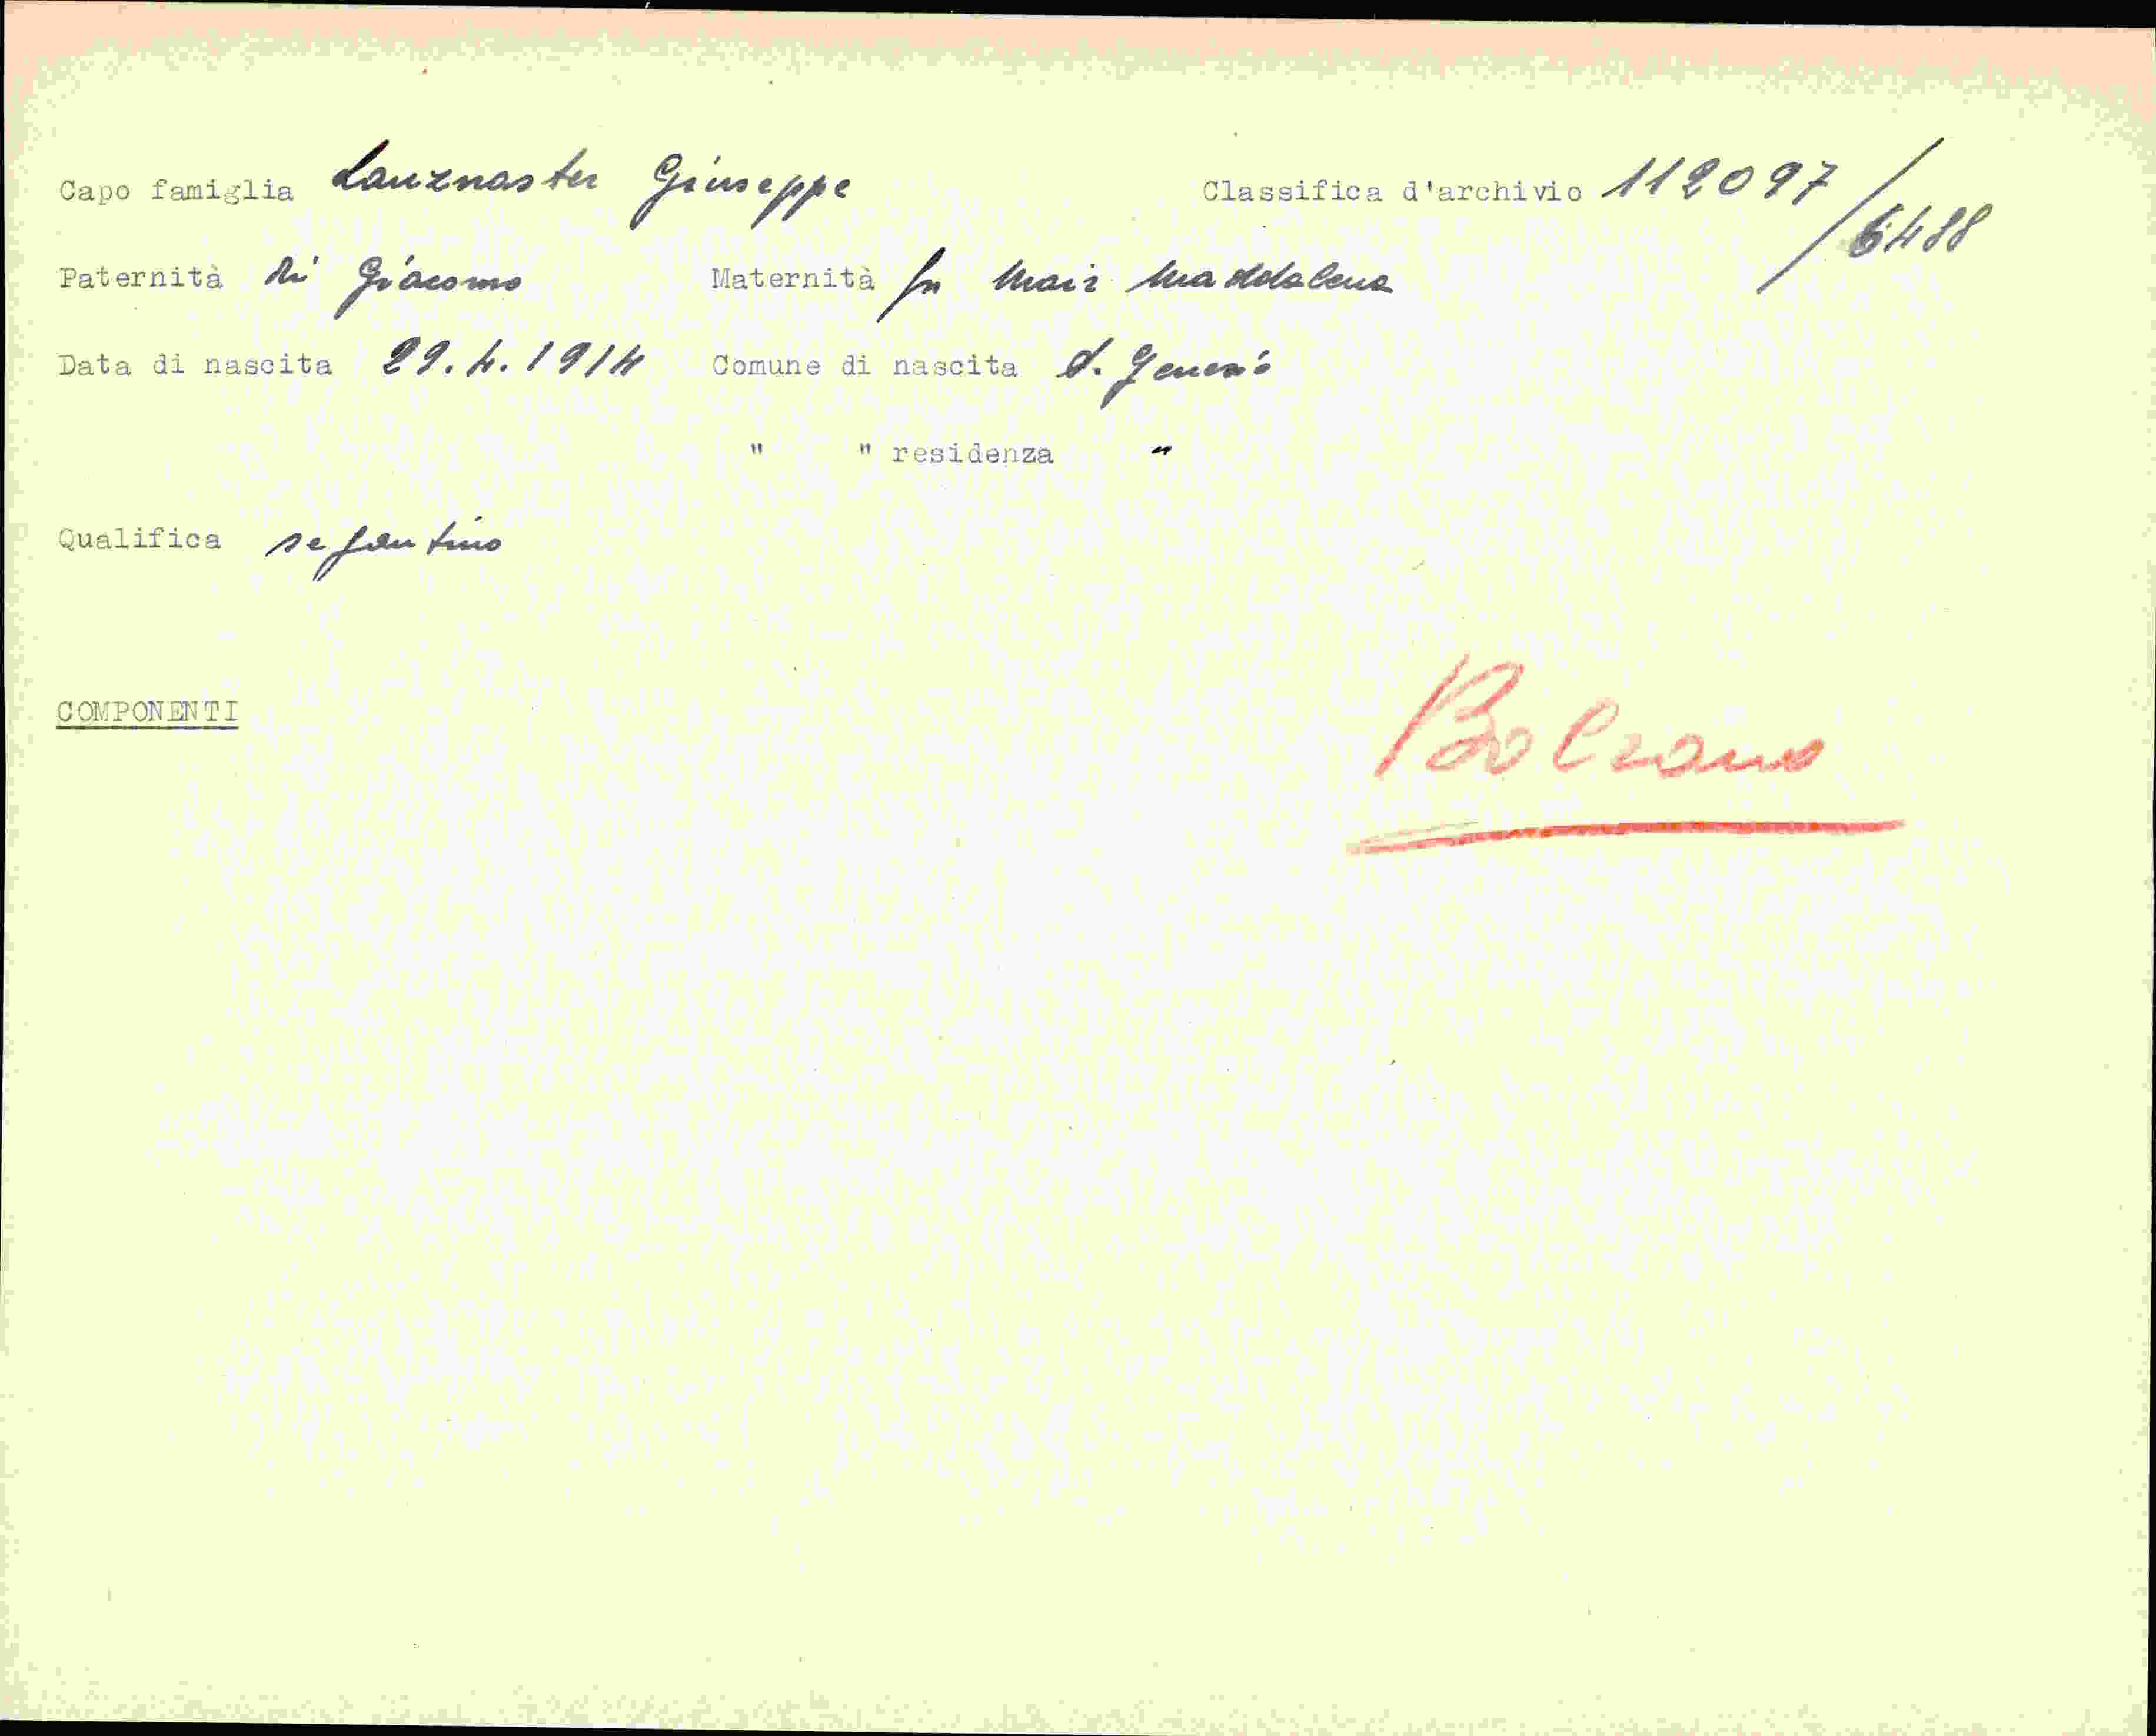 Capo famiglia Lanznaster Giuseppe Classifica d'archivio 112097/6488
Paternità di Giacomo Maternità fu Mair Maddalena
Data di nascita 29.4.1914 Comune di nascita S. Genesio
" " residenza "
Qualifica segantino
COMPONENTI
Bolzano